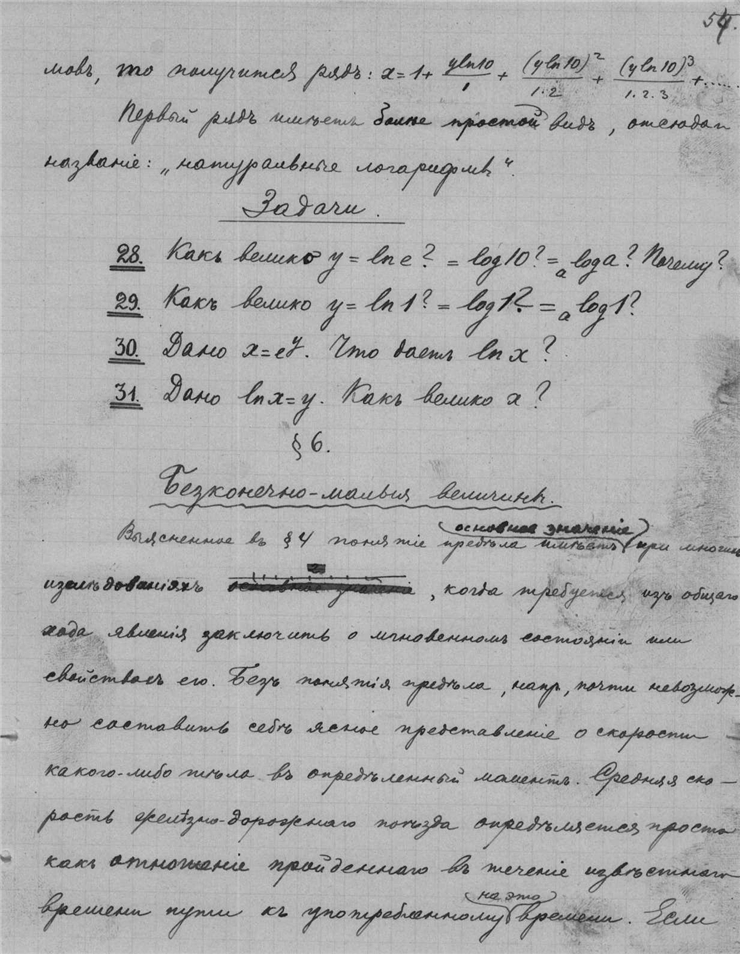 54.
мовъ, то получится рядъ: x = 1 + yln10/1 + (yln10)²/1·2 + (yln10)³/1.2.3 + ......
Первый рядъ имѣетъ болѣе простой видъ, отсюда и
названіе: „натуральные логарифмы“.
Задачи.
28. Какъ велико y = ln e? = log 10? = ₐlog a? Почему?
29. Какъ велико y = ln 1? = log 1? = ₐlog 1?
30. Дано x = eʸ. Что даетъ ln x?
31. Дано ln x = y. Какъ велико x?
§ 6.
Безконечно-малыя величины.
основное значеніе
Выясненное въ § 4 понятіе предѣла имѣетъ при многихъ
изслѣдованіяхъ основное значеніе, когда требуется изъ общаго
хода явленія заключить о мгновенномъ состояніи или
свойствахъ его. Безъ понятія предѣла, напр., почти невозмож-
но составить себѣ ясное представленіе о скорости
какого-либо тѣла въ опредѣленный моментъ. Средняя ско-
рость желѣзно-дорожнаго поѣзда опредѣляется просто
какъ отношеніе пройденнаго въ теченіе извѣстнаго
на это
времени пути къ употребленному времени. Если